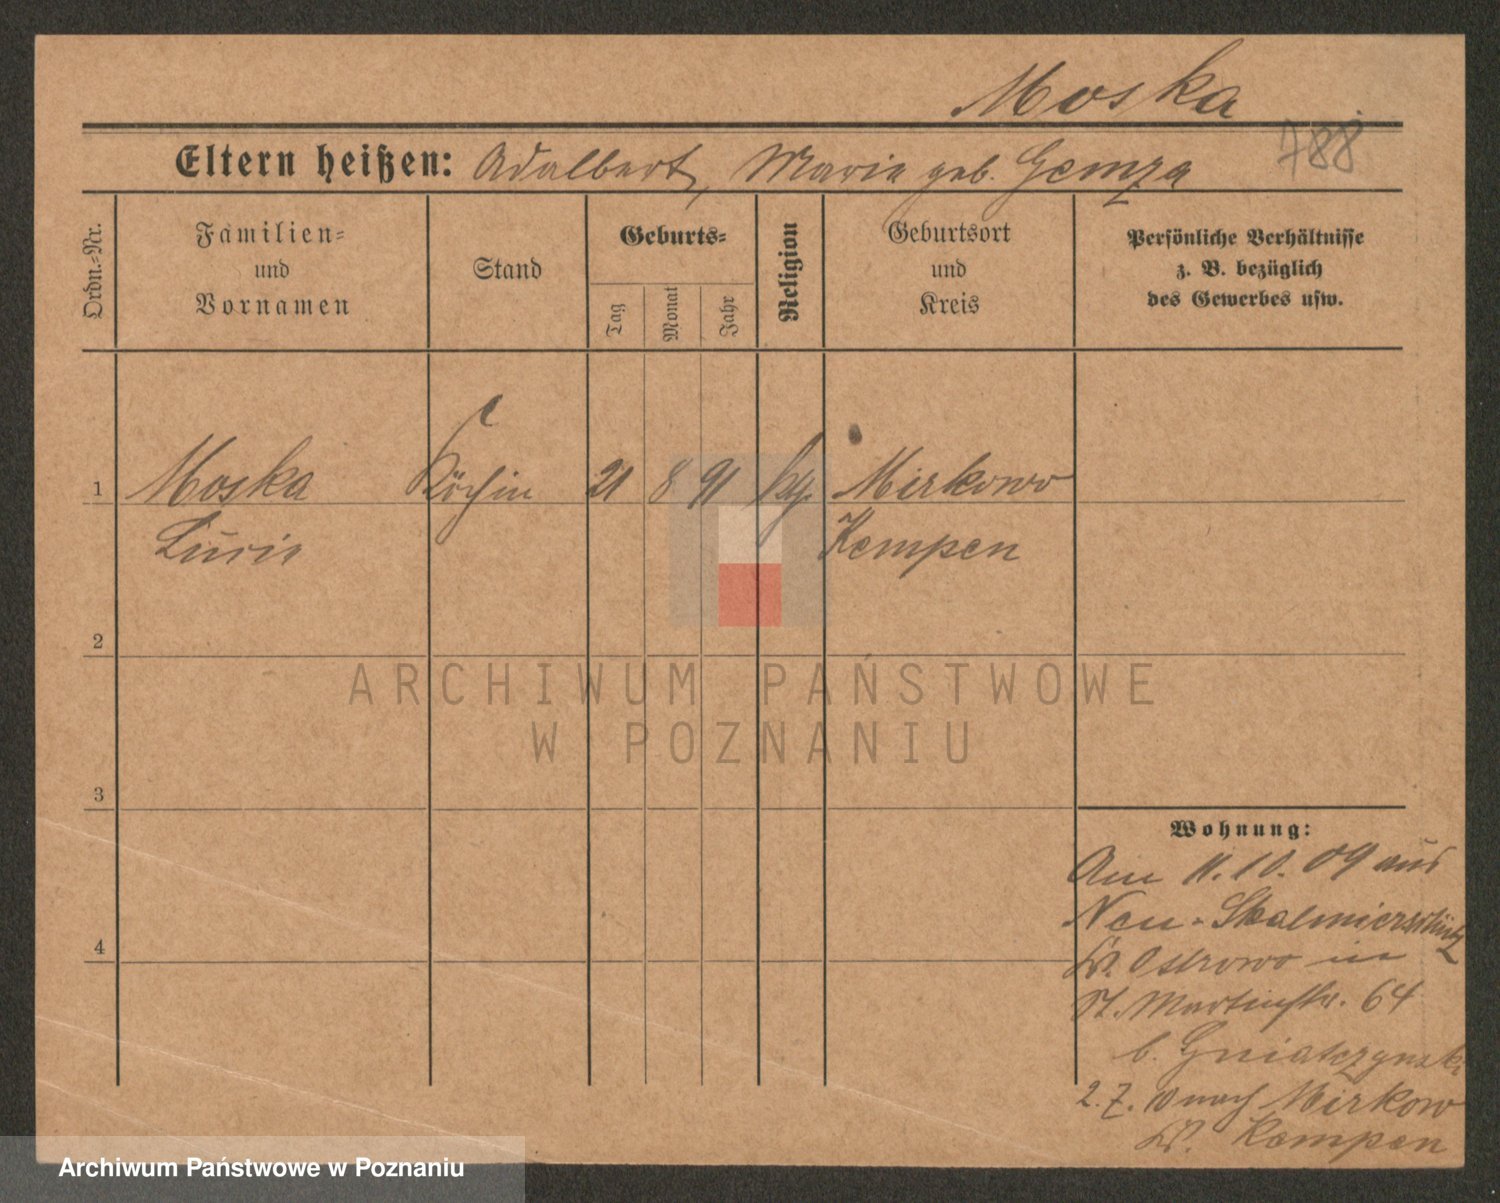 Moska
788
Eltern heißen: Adalbert, Marie geb. Gemza
Ordn.-Nr.
Familien-
und
Vornamen
Stand
Geburts-
Tag
Monat
Jahr
Religion
Geburtsort
und
Kreis
Persönliche Verhältnisse
z. B. bezüglich
des Gewerbes usw.
1 Moska Köchin 21 8 91 kg. Mirkowo
Kempen
2
3
4
Wohnung:
Am 11.10.09 aus
Neu-Skalmierschütz
Kr. Ostrowo in
St. Martinstr. 64
b. Gniatczynski
2. 7. 10 nach Mirkow
Kr. Kempen
ARCHIWUM PAŃSTWOWE
W POZNANIU
Archiwum Państwowe w Poznaniu